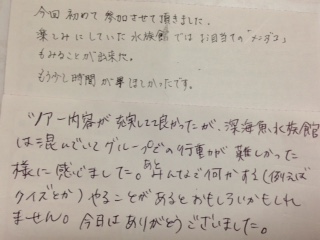 今回初めて参加させて頂きました。
楽しみにしていた水族館ではお目当ての「メンダコ」
もみることが出来た。
もう少し時間が欲しかったです。
ツアー内容が充実してて良かったが、深海魚水族館
は混んでいてグループでの行動が難しかった
様に感じました。あとみんなで何かする(例えば
クイズとか)やることがあるとおもしろいかもしれ
ません。今日はありがとうございました。